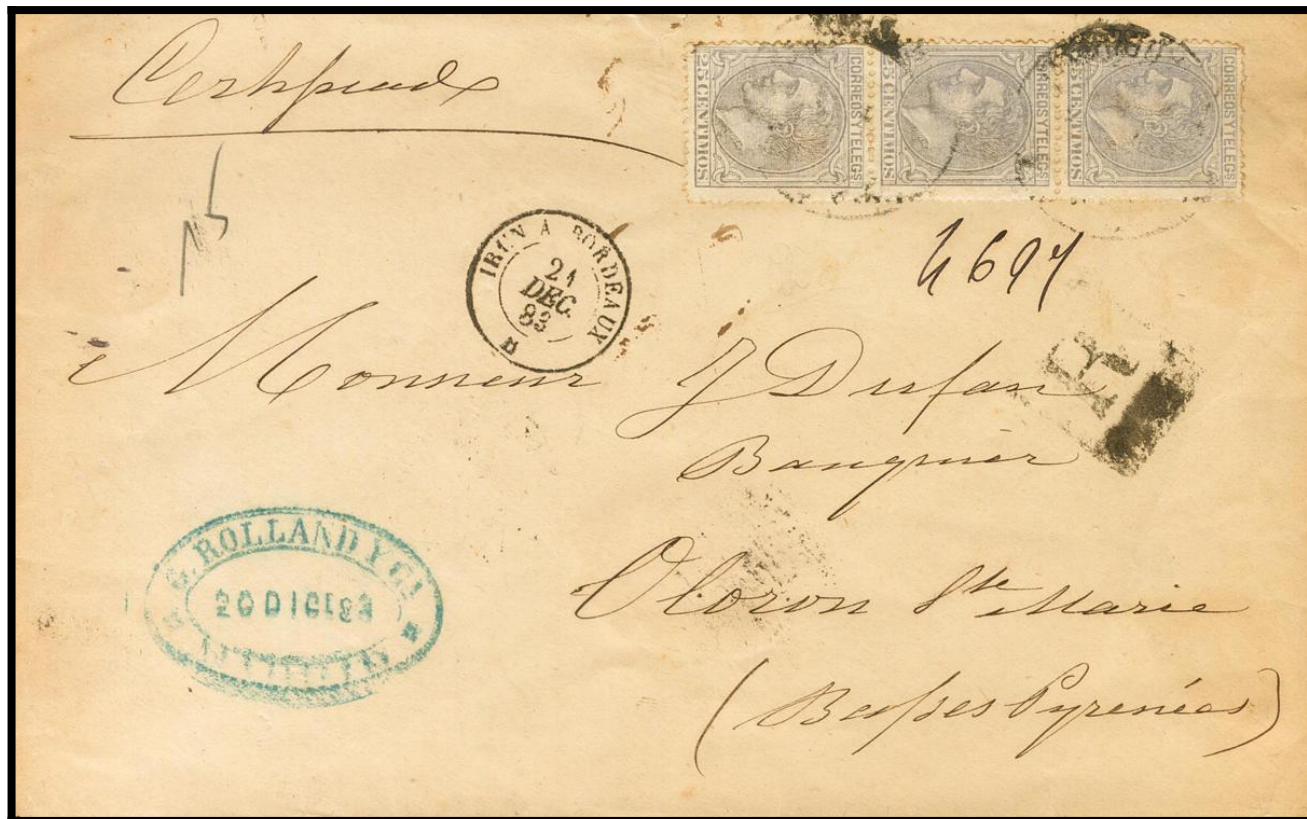 Certificado
25 CENTIMOS CORREOS Y TELEGS
25 CENTIMOS CORREOS Y TELEGS
25 CENTIMOS CORREOS Y TELEGS
IRUN À BORDEAUX
21
DEC.
83
4697
R
Monsieur J Dufau
Banquier
Oloron Ste Marie
(Basses Pyrenées)
G. ROLLAND Y Cª
20 DICE 83